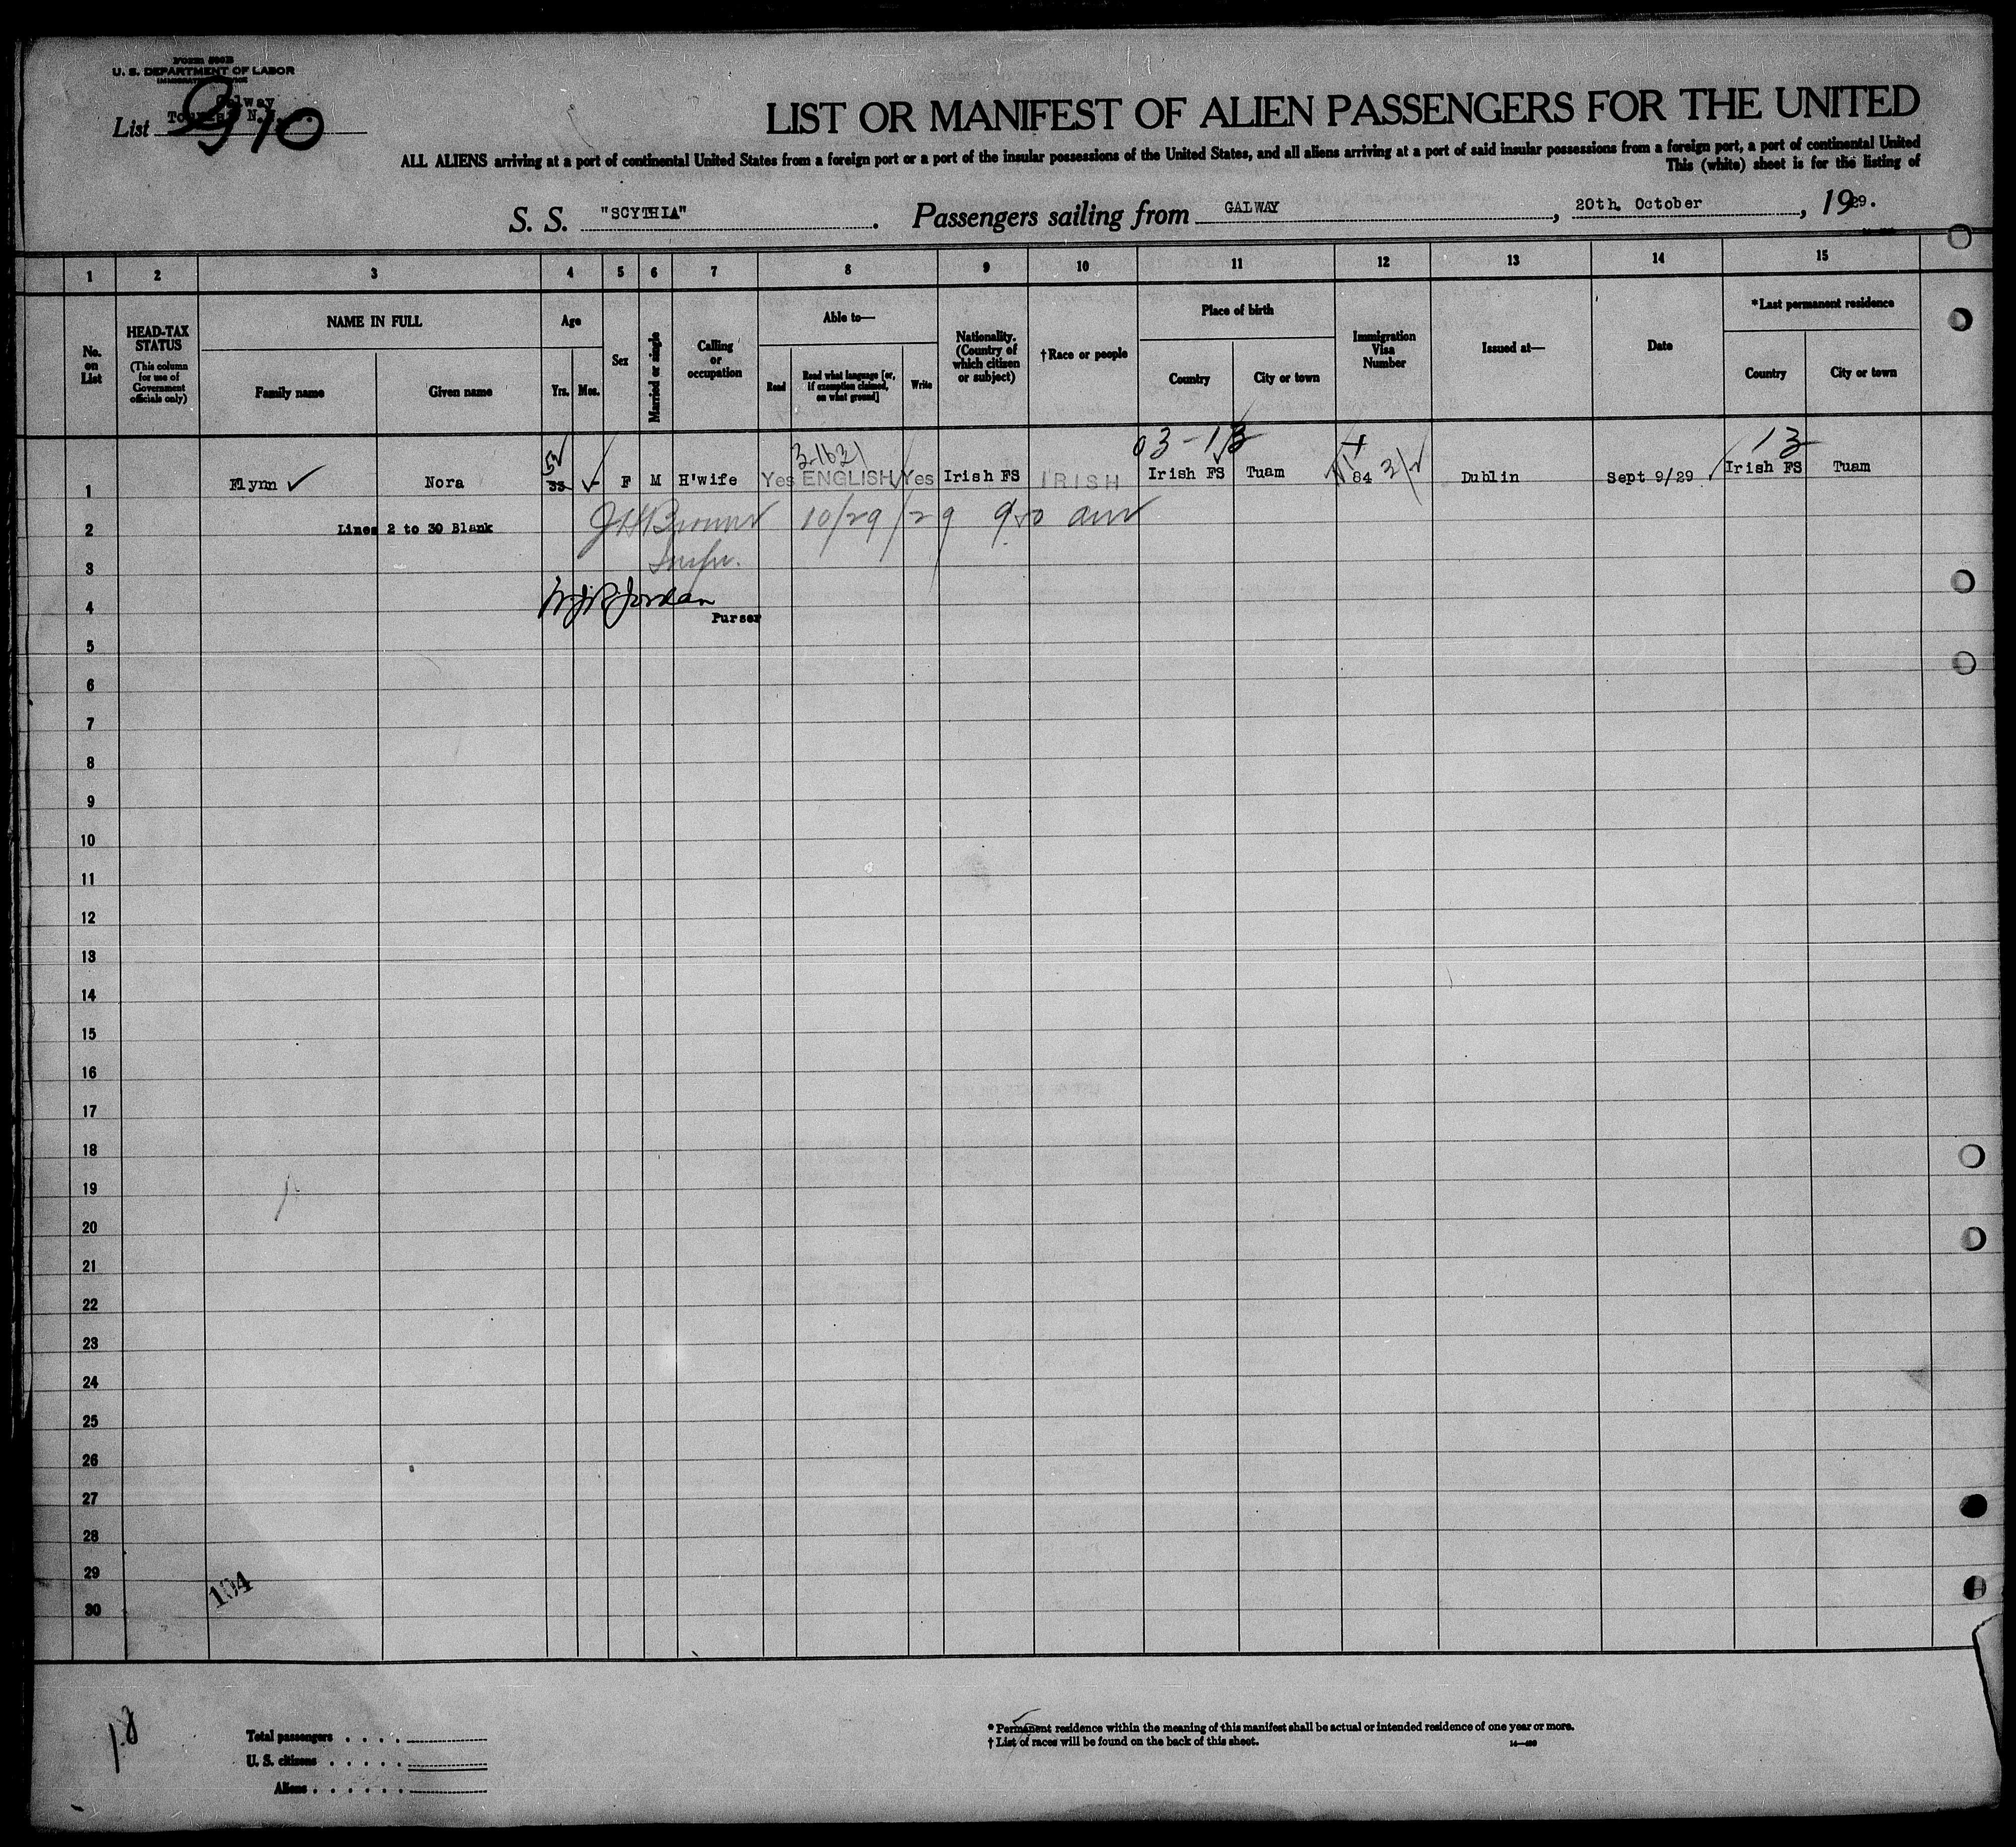 Form 500B
U. S. DEPARTMENT OF LABOR
IMMIGRATION SERVICE
Galway
List 910
LIST OR MANIFEST OF ALIEN PASSENGERS FOR THE UNITED
ALL ALIENS arriving at a port of continental United States from a foreign port or a port of the insular possessions of the United States, and all aliens arriving at a port of said insular possessions from a foreign port, a port of continental United
This (white) sheet is for the listing of
S. S. "SCYTHIA". Passengers sailing from GALWAY, 20th. October, 1929.
1 2 3 4 5 6 7 8 9 10 11 12 13 14 15
No. on List
HEAD-TAX STATUS (This column for use of Government officials only)
NAME IN FULL
Family name
Given name
Age
Yrs.
Mos.
Sex
Married or single
Calling or occupation
Able to—
Read
Read what language [or, if exemption claimed, on what ground]
Write
Nationality. (Country of which citizen or subject)
†Race or people
Place of birth
Country
City or town
Immigration Visa Number
Issued at—
Date
*Last permanent residence
Country
City or town
3-1631
03-13
13
1 Flynn ✓ Nora 33 ✓ F M H'wife Yes ENGLISH Yes Irish FS IRISH Irish FS Tuam 84 Dublin Sept 9/29 Irish FS Tuam
2 Lines 2 to 30 Blank 10/29/29
3
4 Jordan
Purser
5
6
7
8
9
10
11
12
13
14
15
16
17
18
19
20
21
22
23
24
25
26
27
28
29
104
30
Total passengers . . . .
U. S. citizens . . . . .
Aliens . . . . . .
* Permanent residence within the meaning of this manifest shall be actual or intended residence of one year or more.
† List of races will be found on the back of this sheet.